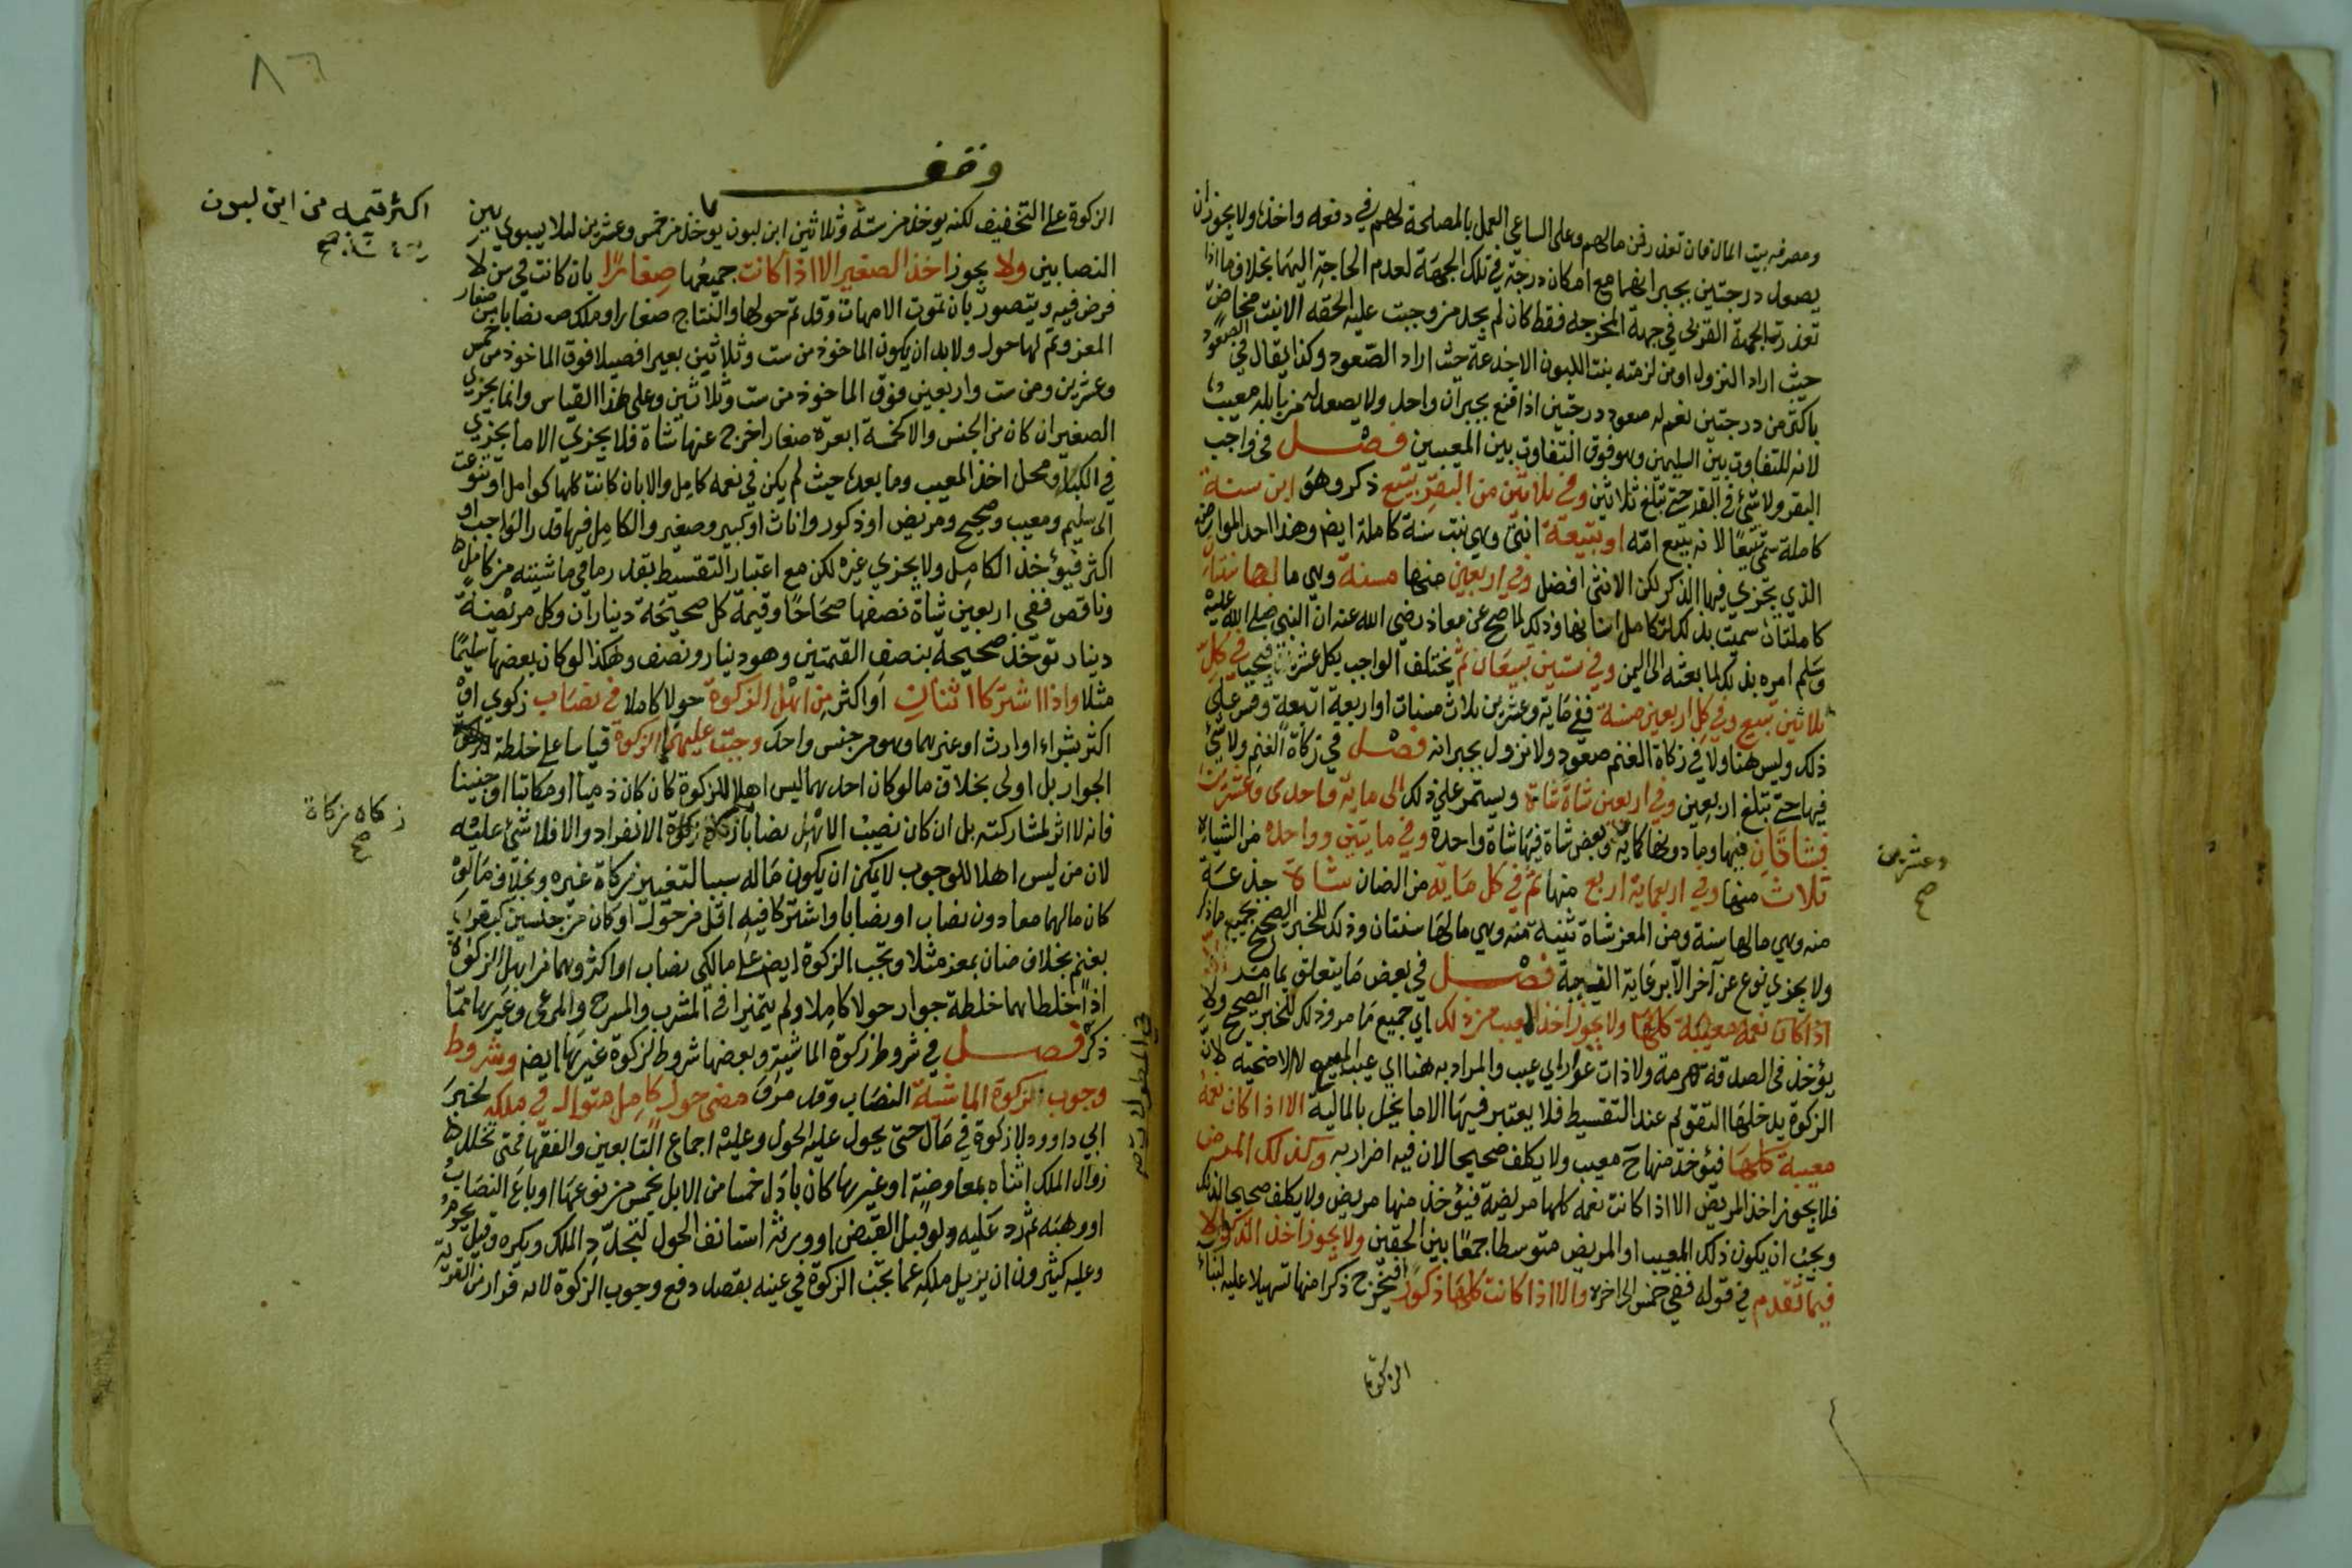 ومصرفه بيت المال فان تعذر فمن مالهم وعلى الساعي العمل بالمصلحة لهم في دفعه واخذه ولا يجوز ان
يصعد درجتين بجبرانهما مع امكان درجة في تلك الجهة لعدم الحاجة اليهما بخلاف ما اذا
تعذرت الجهة القربى في جهة المخرجة فقط كان لم يجد من وجبت عليه الحقه الا بنت مخاض
حيث اراد النزول او من لزمته بنت اللبون الا جذعة حيث اراد الصعود وكذا يقال في الصعود
باكثر من درجتين نعم له صعود درجتين اذا قنع بجبران واحد ولا يصعد من بابله معيب
لانه للتفاوت بين السليمين وهو فوق التفاوت بين المعيبين فصل في واجب
البقر ولا شئ في البقر حتى تبلغ ثلاثين وفي ثلاثين من البقر تبيع ذكر وهو ابن سنة
كاملة سمي تبيعا لانه يتبع امه او تبيعة انثى وهي بنت سنة كاملة ايض وهذا احد المواضع
الذي يجزي فيها الذكر لكن الانثى افضل وفي اربعين منها مسنة وهي ما لها سنتان
كاملتان سميت بذلك لتكامل اسنانها وذلك لما صح عن معاذ رضي الله عنه ان النبي صلى الله عليه
وسلم امره بذلك لما بعثه الى اليمن وفي ستين تبيعان ثم يختلف الواجب بكل عشر فيجب في كل
ثلاثين تبيع وفي كل اربعين مسنة ففي مائة وعشرين ثلاث مسنات او اربعة اتبعة وقس على
ذلك وليس هنا ولا في زكاة الغنم صعود ولا نزول بجبران فصل في زكاة الغنم ولا شئ
فيها حتى تبلغ اربعين وفي اربعين شاة شاة ويستمر على ذلك الى مائة واحدى وعشرين
فشاتان فيها وما دونها كمائة وبعض شاة فيها شاة واحدة وفي مايتين وواحدة من الشياه
ثلاث منها وفي اربعمائة اربع منها ثم في كل مائة من الضان شاة جذعة
منه وهي ما لها سنة ومن المعز شاة ثنية منه وهي ما لها سنتان وذلك للخبر الصحيح بجميع ما ذكر
ولا يجزي نوع عن آخر الا برعاية القيمة فصل في بعض ما يتعلق بما مر
اذا كان نعمه معيبة كلها ولا يجوز اخذ المعيب من ذلك اي جميع ما مر وذلك للخبر الصحيح ولا
يؤخذ في الصدقة هرمة ولا ذات عوار اي عيب والمراد به هنا اي عيب المبيع لا الاضحية لان
الزكوة يدخلها التقويم عند التقسيط فلا يعتبر فيها الا ما يخل بالمالية الا اذا كان نعمه
معيبة كلها فيؤخذ منها ح معيب ولا يكلف صحيحا لان فيه اضرارا به وكذلك المريض
فلا يجوز اخذ المريض الا اذا كانت نعمه كلها مريضة فيؤخذ منها مريض ولا يكلف صحيحا لذلك
ويجب ان يكون ذلك المعيب او المريض متوسطا جمعا بين الحقين ولا يجوز اخذ الذكر الا
فيما تقدم في قوله ففي خمس الى اخره والا اذا كانت كلها ذكورا فيخرج ذكرا منها تسهيلا عليه لبناء
الزكوة
وعشرين
صح
٨٦
وقف
الزكوة على التخفيف لكنه يوخذ من ستة وثلاثين ابن لبون يوخذ من خمس وعشرين لئلا يسوي بين
اكثر قيمه من ابن لبون
صح
النصابين ولا يجوز اخذ الصغير الا اذا كانت جميعها صغارا بان كانت في سن لا
فرض فيه ويتصور بان تموت الامهات وقد تم حولها والنتاج صغار او ملك نصابا من صغار
المعز وتم لها حول ولا بد ان يكون الماخوذ من ست وثلاثين بعيرا فصيلا فوق الماخوذ من خمس
وعشرين ومن ست واربعين فوق الماخوذ من ست وثلاثين وعلى هذا القياس وانما يجزي
الصغير ان كان من الجنس والا كخمسة ابعرة صغار اخرج عنها شاة فلا يجزي الا ما يجزي
في الكبار ومحل اخذ المعيب وما بعده حيث لم يكن في نعمه كامل والا بان كانت كلها كوامل او تنوعت
الى سليم ومعيب وصحيح ومريض او ذكور واناث او كبير وصغير والكامل فيها قدر الواجب او
اكثر فيؤخذ الكامل ولا يجزي غيره لكن مع اعتبار التقسيط بقدر ما في ماشيته من كامل
وناقص ففي اربعين شاة نصفها صحاحا وقيمة كل صحيحة ديناران وكل مريضة
دينار توخذ صحيحة بنصف القيمتين وهو دينار ونصف وهكذا لو كان بعضها سليما
مثلا واذا اشتركا اثنان او اكثر من اهل الزكوة حولا كاملا في نصاب زكوي او
اكثر بشراء او ارث او غيرهما وهو من جنس واحد وجبت عليهما الزكوة قياسا على خلطة
الجوار بل اولى بخلاف ما لو كان احدهما ليس اهلا للزكوة كان كان ذميا او مكاتبا او جنينا
فانه لا اثر لمشاركته بل ان كان نصيب الاهل نصابا زكاه زكوة الانفراد والا فلا شئ عليه
زكاه زكاة
صح
لان من ليس اهلا للوجوب لا يمكن ان يكون ماله سببا لتغيير زكاة غيره وبخلاف ما لو
كان مالهما معا دون نصاب او نصابا واشتركا فيه اقل من حول او كان من جنسين كبقر
بغنم بخلاف ضان بمعز مثلا وتجب الزكوة ايض على مالكي نصاب او اكثر وهما من اهل الزكوة
اذا خلطاهما خلطة جوار حولا كاملا ولم يتميزا في المشرب والمسرح والمرعى وغيرها مما
ذكر فصل في شروط زكوة الماشية وبعضها شروط لزكوة غيرها ايض وشروط
وجوب الزكوة الماشية النصاب وقد مر و مضي حول كامل متوال في ملكه لخبر
ابي داوود لا زكوة في مال حتى يحول عليه الحول وعليه اجماع التابعين والفقها فمتى تخلل
زوال الملك اثناه بمعاوضة او غيرها كان بادل خمسا من الابل بخمس من نوعها او باع النصاب
او وهبه ثم رد عليه ولو قبل القبض او ورثه استانف الحول لتجدد الملك ويكره وقيل يحرم
وعليه كثيرون ان يزيل ملكه عما تجب الزكوة في عينه بقصد دفع وجوب الزكوة لانه فرار من القربة